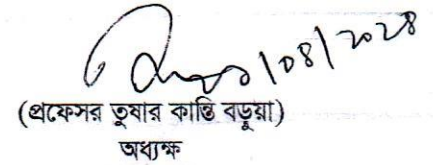 /08/2028
(প্রফেসর তুষার কান্তি বড়ুয়া)
অধ্যক্ষ